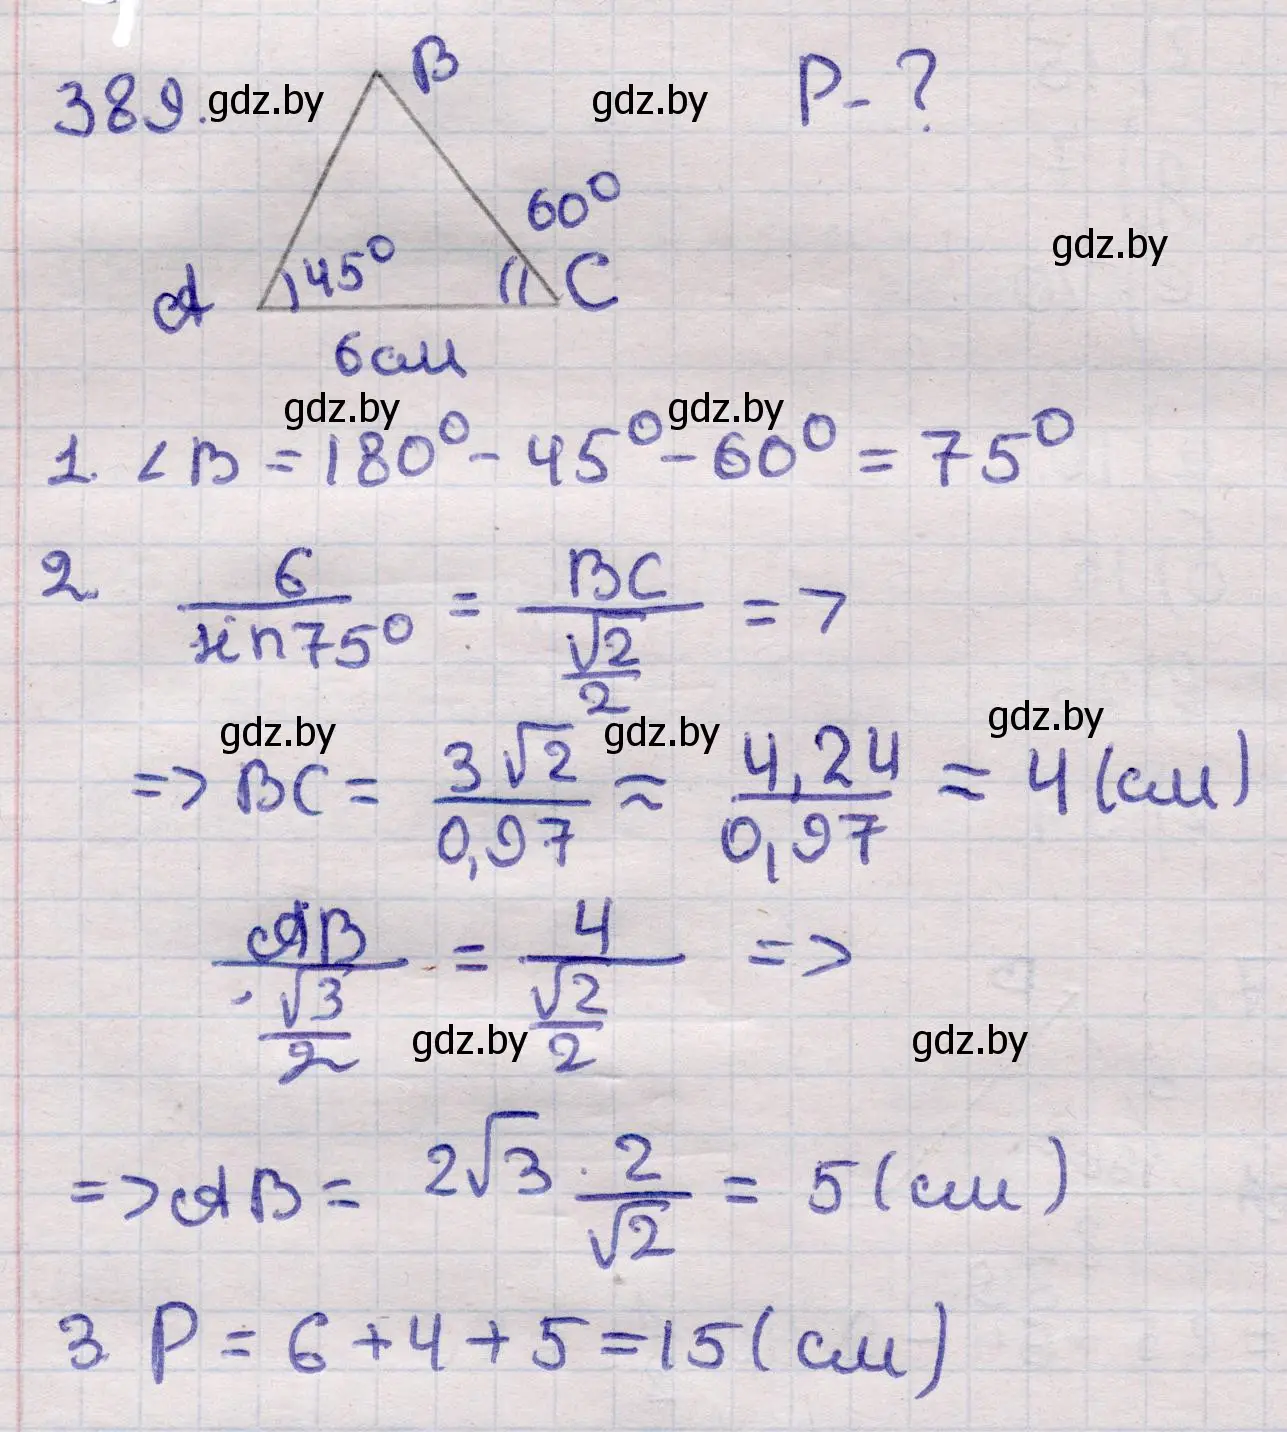 389. gdz.by B gdz.by P - ?
60° gdz.by
A 45° C
6 см
gdz.by gdz.by
1. ∠B = 180° - 45° - 60° = 75°
2. 6/sin75° = BC/(√2/2) =>
gdz.by gdz.by gdz.by
=> BC = 3√2/0,97 ≈ 4,24/0,97 ≈ 4 (см)
AB/(√3/2) = 4/(√2/2) =>
gdz.by gdz.by
=> AB = 2√3 · 2/√2 = 5 (см)
3. P = 6 + 4 + 5 = 15 (см)